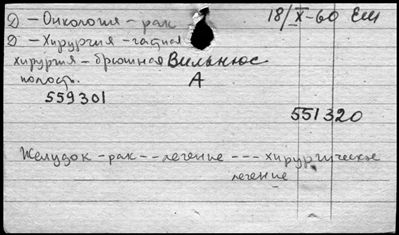 Д – Онкология – рак 18/IX-60 Еш
Д – Хирургия – частная
хирургия – брюшная Вильнюс
полость. А
559301
551320
Желудок – рак – – лечение – – – хирургическое
лечение